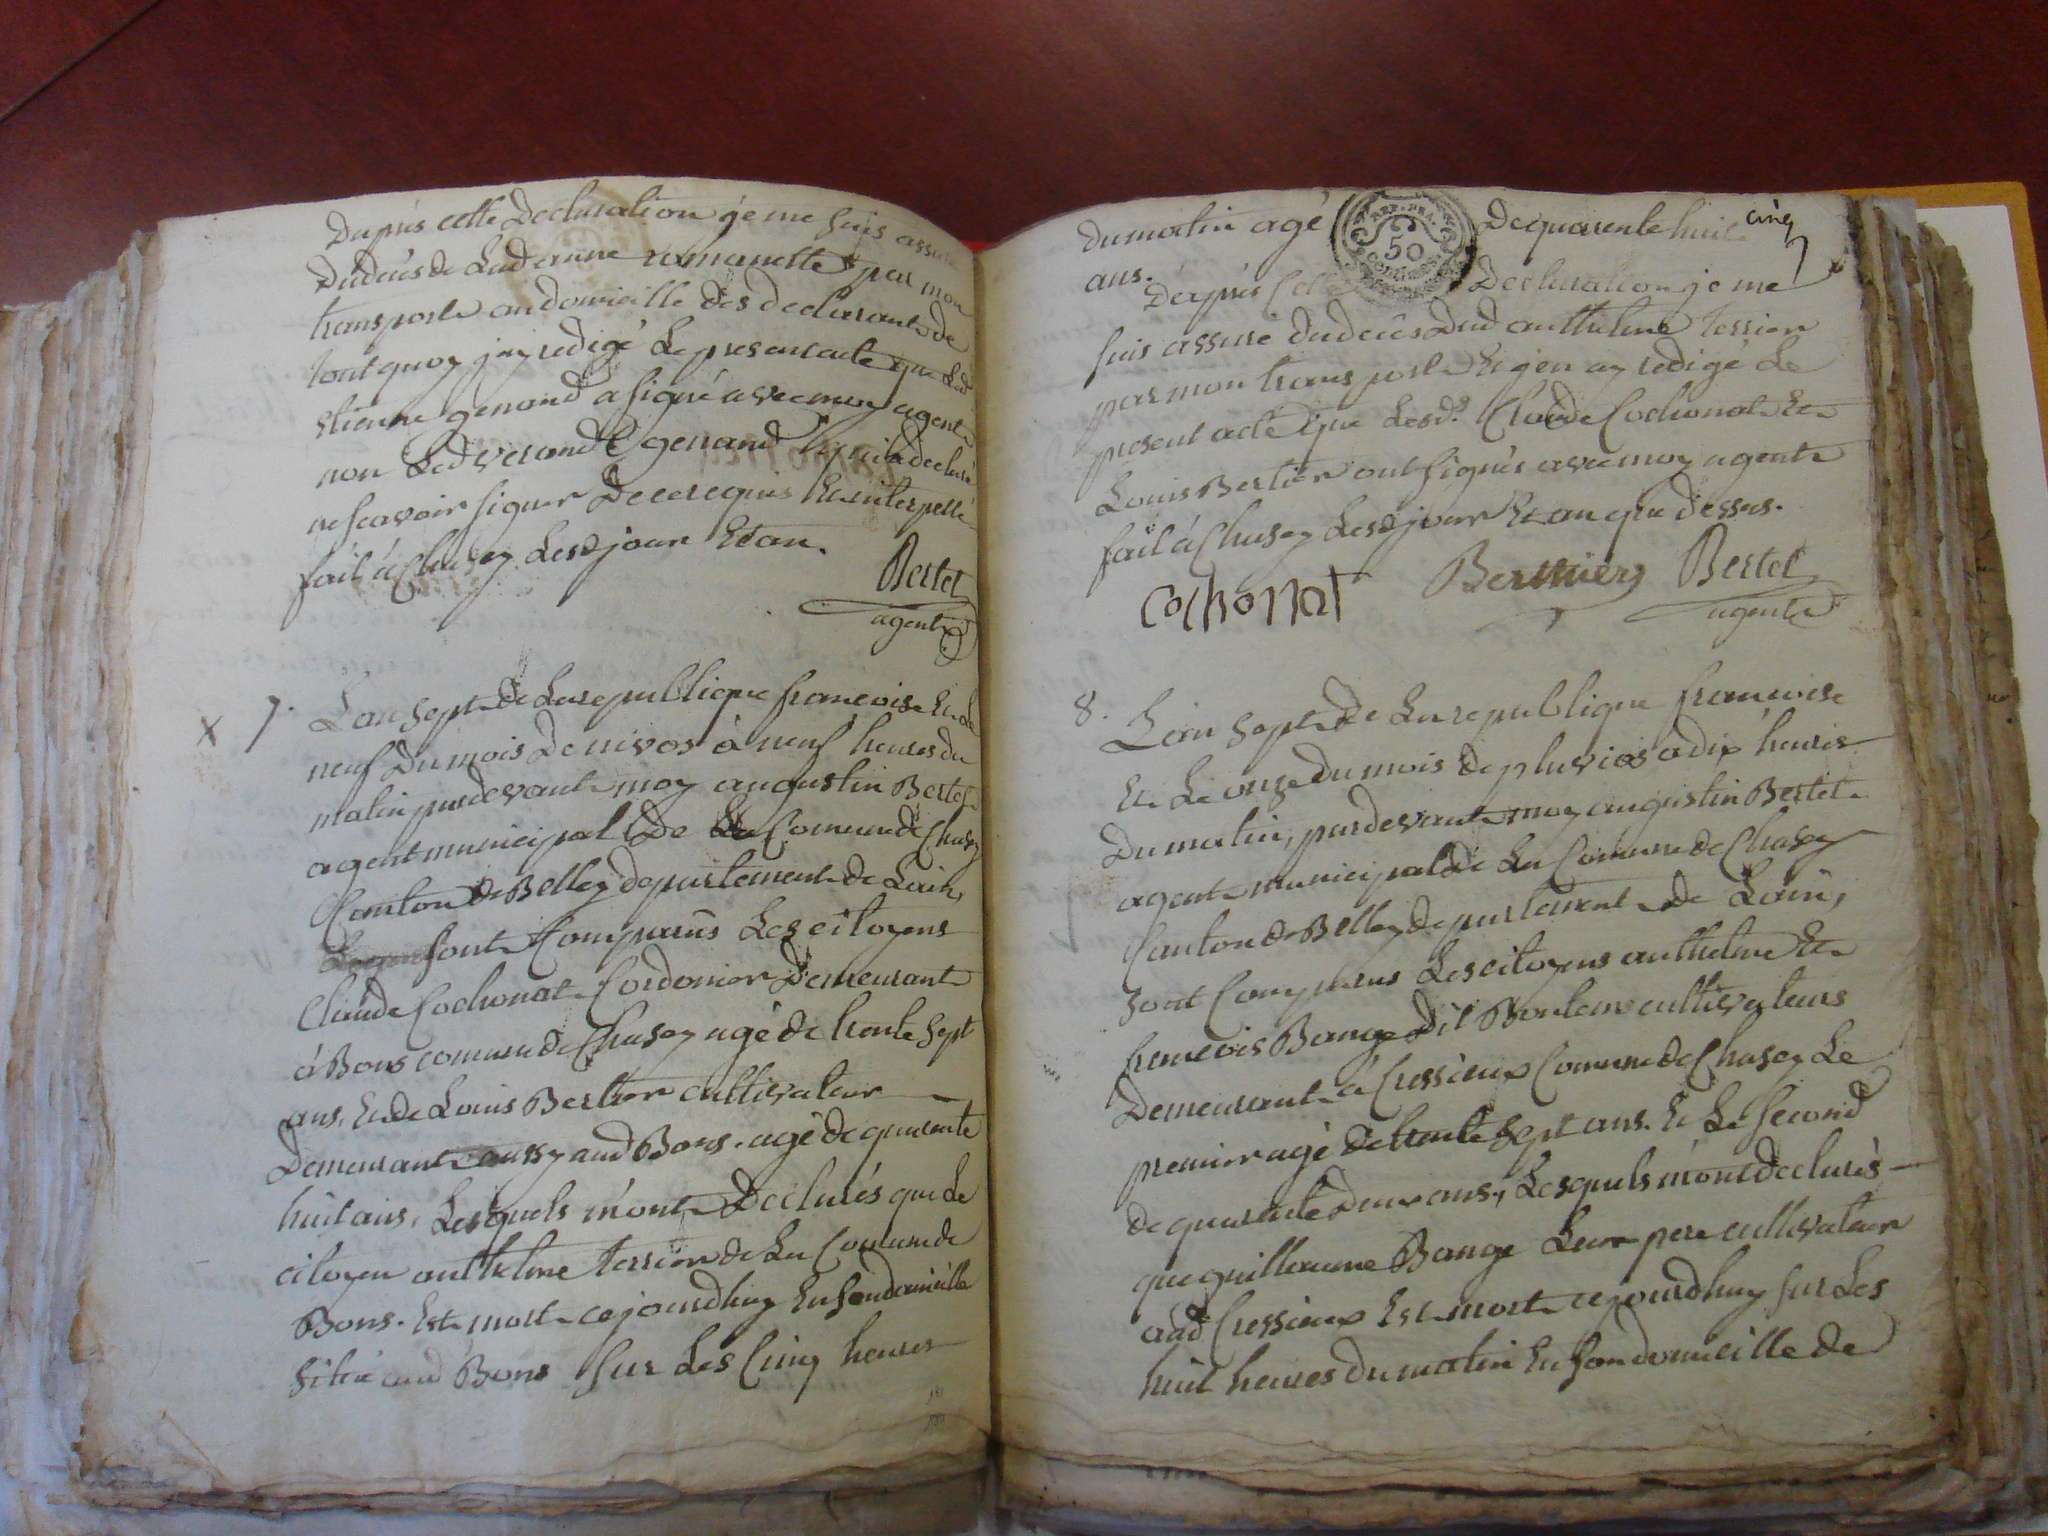 Dapres cette Declaration je me suis assuré
Dudeces de Ladanne romanette par mon
transporte audomicille des declarants de
tout quoy j'ay redigé Le present acte que Led
etienne genand a signé avec moy agent
non Led verand genand
ne scavoir signer De ce requis Et interpellé
fait à Chasey Lesd jour Et an.
Bertet
agent
X 7. L'an sept de La republique francoise Et Le
neuf Du mois De nivos à neuf heures du
matin pardevant moy augustin Bertet
agent municipal De La Comune de Chasey
Canton de Belley departement de Lain,
sont Comparus Les citoyens
Claude Cochonat Cordonier Demeurant
à Bons comune de Chasey agé de trente sept
ans, Et de Louis Bertier cultivateur
Demeurant aussy aud Bons. agé de quarente
huit ans, Lesquels m'ont Declarés que Le
citoyen anthelme terrier de La Comune de
Bons. Est mort cejourdhuy En son domicille
situé aud Bons sur Les Cinq heures
du matin agé De quarente huit cinq
ans.
REP. FRA.
50
Dexpres Cette Declaration je me
suis assuré dudeces Dud anthelme terrier
par mon transporte Et j'en ay redigé Le
present acte que Lesd. Claude Cochonat Et
Louis Bertier ont signés avec moy agent
fait à Chasey Lesd jour Et an que dessus.
Cochonat Berthier Bertet
agent
8. L'an sept De La republique francoise
Et Le onze du mois de pluvios a dix heures
Du matin, pardevant moy augustin Bertet
agent municipal de La Comune de Chasey
Canton de Belley departement de Lain,
sont Comparus Les citoyens anthelme Et
francois Bange dit cultivateurs
Demeurant à Cressieux Comune de Chasey Le
premier agé de trente sept ans. Et Le second
de quarente deux ans, Lesquels m'ont declarés
que guillaume Bange Leur pere cultivateur
aud Cressieux Est mort cejourdhuy sur Les
huit heures du matin En son domicille de